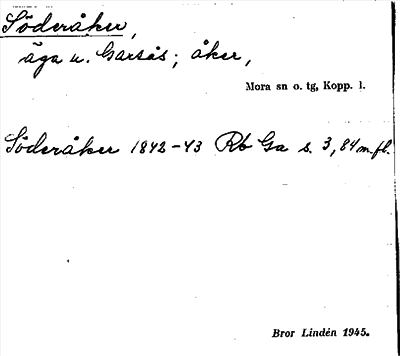 Söderåker,
äga u. Garsås; åker,
Mora sn o. tg, Kopp. l.
Söderåker 1842-43 Rb Ga s. 3, 84 m.fl.
Bror Lindén 1945.